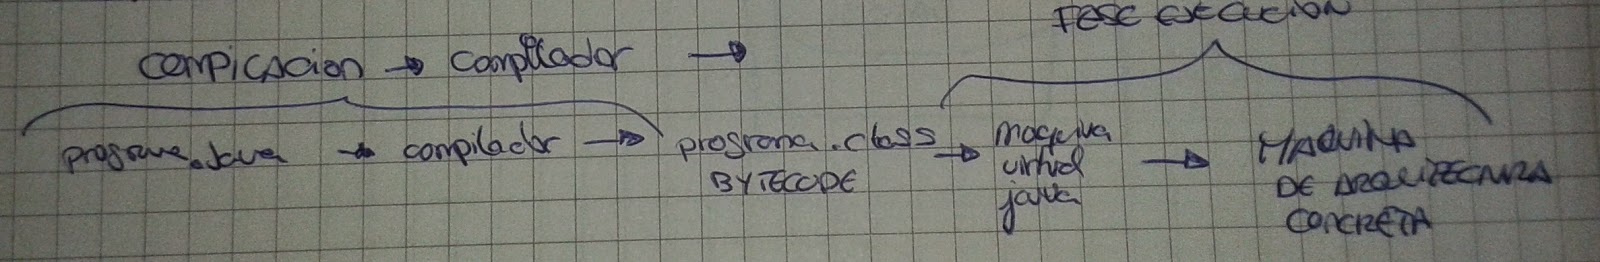 FASE EJECUCION
compicacion → compilador →
programa.java → compilador → programa.class → maquina → MAQUINA
BYTECODE virtual DE ARQUITECTURA
java CONCRETA